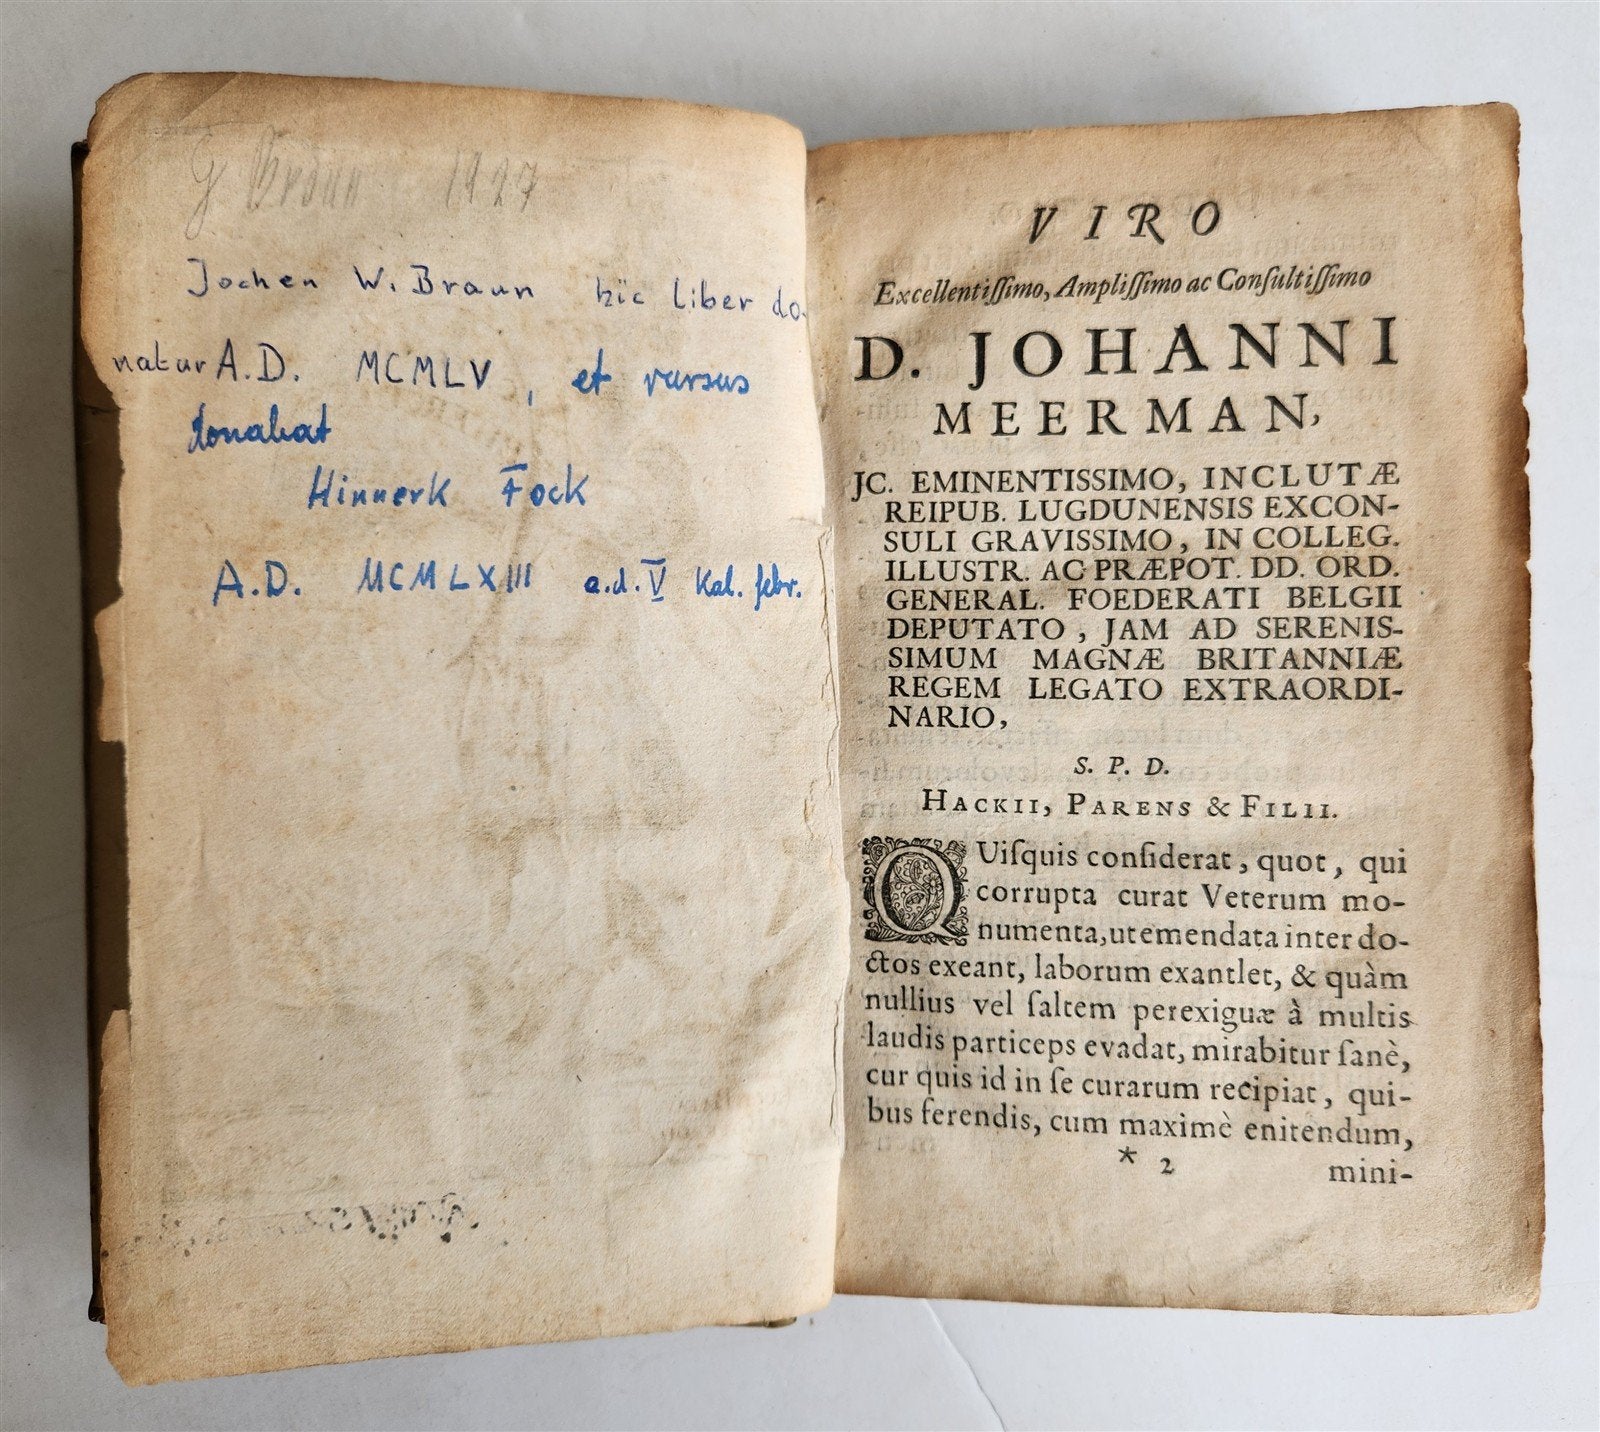 G Braun 1927
Jochen W. Braun hic liber do-
natur A.D. MCMLV, et rursus
donabat
Hinnerk Fock
A.D. MCMLXIII a.d. V Kal. febr.
VIRO
Excellentiſſimo, Ampliſſimo ac Conſultiſſimo
D. JOHANNI
MEERMAN,
JC. EMINENTISSIMO, INCLUTÆ
REIPUB. LUGDUNENSIS EXCON-
SULI GRAVISSIMO, IN COLLEG.
ILLUSTR. AC PRÆPOT. DD. ORD.
GENERAL. FOEDERATI BELGII
DEPUTATO, JAM AD SERENIS-
SIMUM MAGNÆ BRITANNIÆ
REGEM LEGATO EXTRAORDI-
NARIO,
S. P. D.
HACKII, PARENS & FILII.
QUiſquis conſiderat, quot, qui
corrupta curat Veterum mo-
numenta, ut emendata inter do-
ctos exeant, laborum exantlet, & quàm
nullius vel ſaltem perexiguæ à multis
laudis particeps evadat, mirabitur ſanè,
cur quis id in ſe curarum recipiat, qui-
bus ferendis, cum maximè enitendum,
* 2 mini-